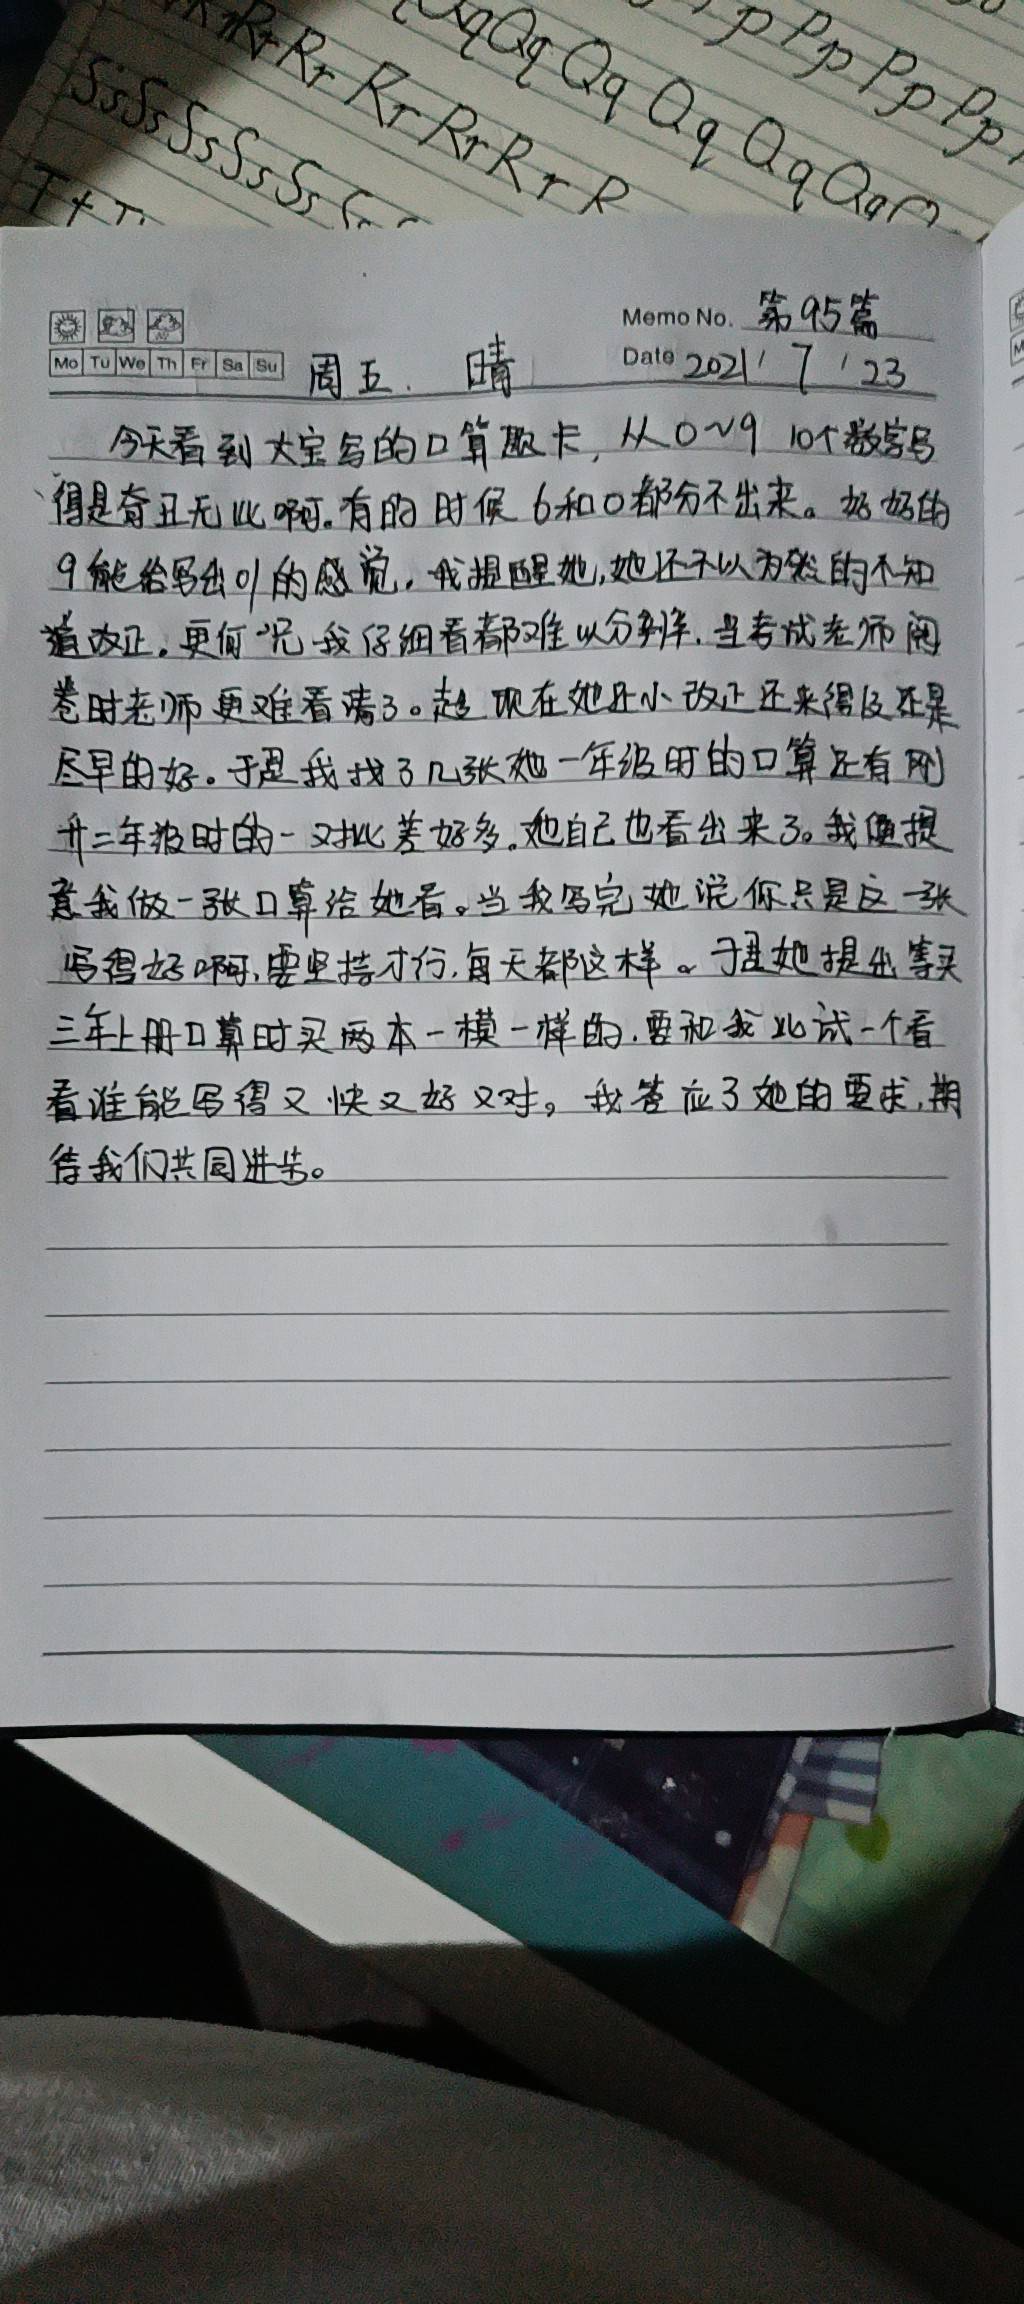 Rr Rr Rr Rr R r R
Qq Qq Qq Qq Qq Qq
p Pp Pp Pp
Ss Ss Ss Ss Ss
T t T
Memo No. 第95篇
Mo Tu We Th Fr Sa Su
周五. 晴
Date 2021 / 7 / 23
今天看到大宝写的口算题卡,从0~9 10个数字写
得是奇丑无比啊。有的时候6和0都分不出来。好好的
9能给写出01的感觉.我提醒她,她还不以为然的不知
道改正。更何况我仔细看都难以分辨.当考试老师阅
卷时老师更难看清了。趁现在她还小改正还来得及还是
尽早的好。于是我找了几张她一年级时的口算还有刚
升二年级时的一对比差好多。她自己也看出来了。我便提
意我做一张口算给她看。当我写完她说你只是这一张
写得好啊,要坚持才行,每天都这样。于是她提出等买
三年上册口算时买两本一模一样的.要和我比试一个看
看谁能写得又快又好又对。我答应了她的要求,期
待我们共同进步。